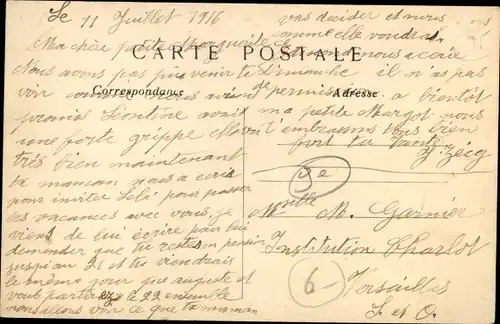 Le 11 Juillet 1916
Ma chère petite Marguerite
CARTE POSTALE
Correspondance
Nous avons pas pu venir le Dimanche
voir comme nous avions
promis Léontine avait
une forte grippe elle va
très bien maintenant
ta maman nous a écris
pour inviter Lélé pour passer
les vacances avec vous, je
viens de lui écrire pour lui
demander que tu restes en pension
jusqu'au 21 et tu viendrais
le même jour que auguste et
vous partirez le 22 ensemble
nous allons voir ce que ta maman
vas décider et nous
comme elle voudras
nous a écris
il n'as pas
de permission
Adresse.
a bientôt
ma petite Margot nous
t'embrassons tous bien
fort ta Tante
De
Melle M. Garnier
Institution Charlot
6
Versailles
S. et O.